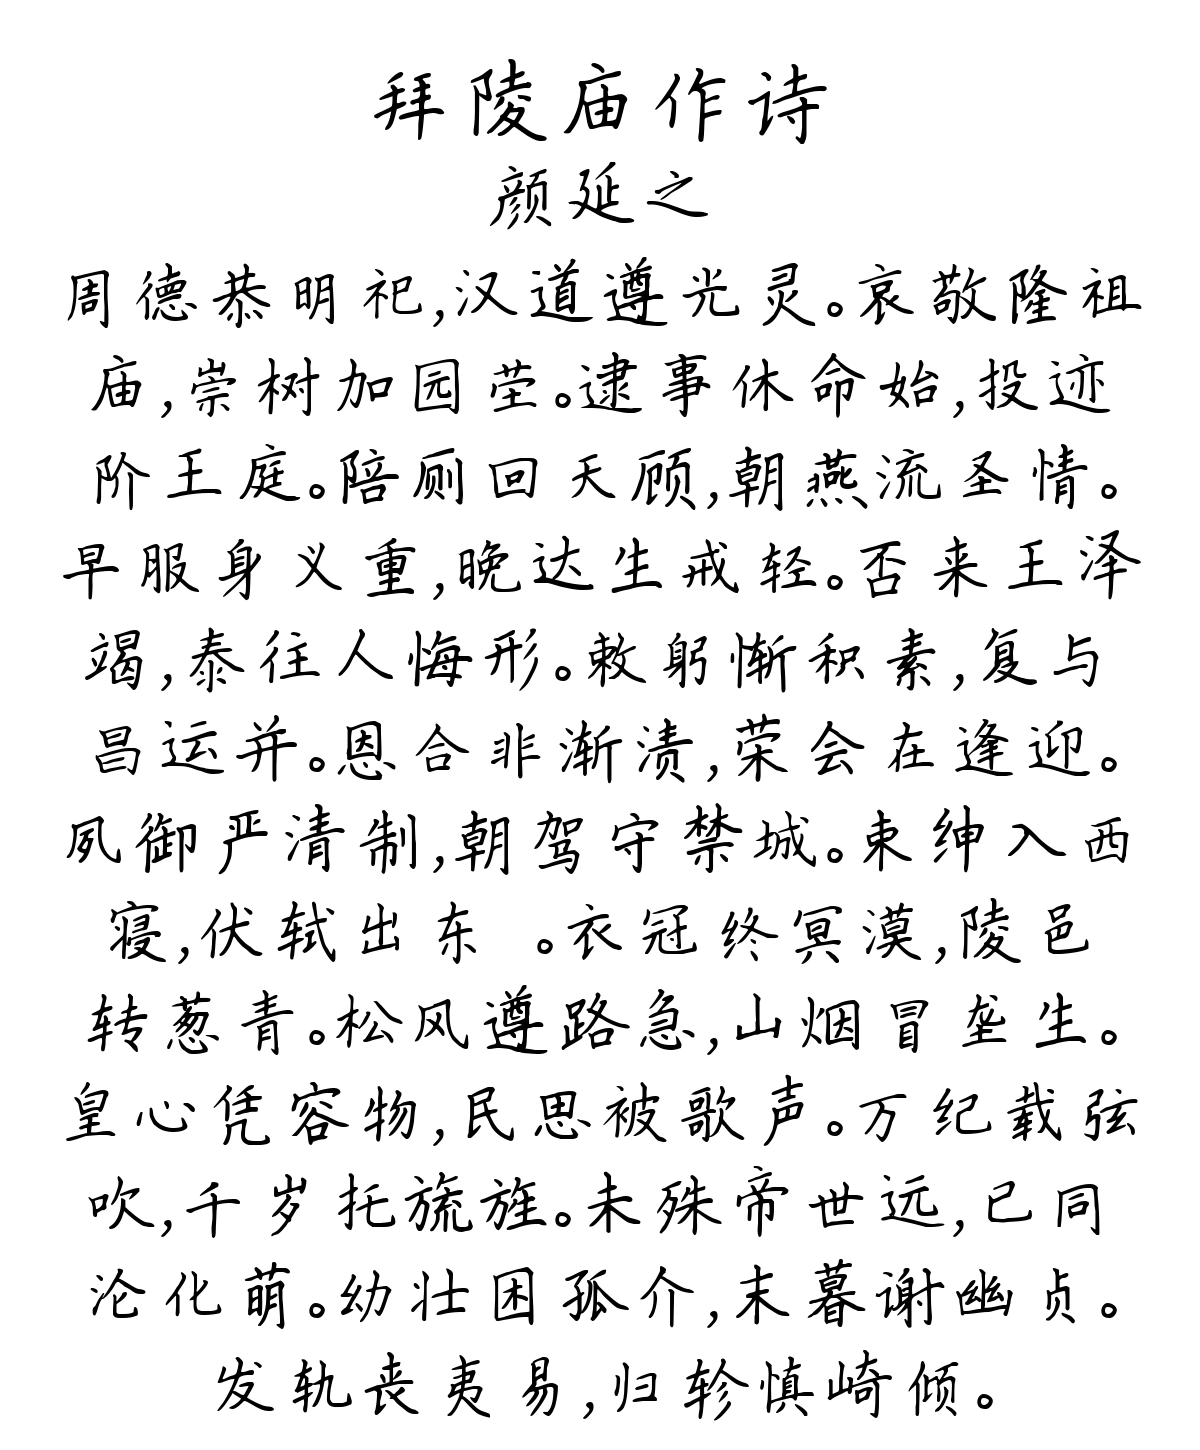 拜陵庙作诗
颜延之
周德恭明祀,汉道遵光灵。哀敬隆祖
庙,崇树加园茔。逮事休命始,投迹
阶王庭。陪厕回天顾,朝燕流圣情。
早服身义重,晚达生戒轻。否来王泽
竭,泰往人悔形。敕躬惭积素,复与
昌运并。恩合非渐渍,荣会在逢迎。
夙御严清制,朝驾守禁城。束绅入西
寝,伏轼出东 。衣冠终冥漠,陵邑
转葱青。松风遵路急,山烟冒垄生。
皇心凭容物,民思被歌声。万纪载弦
吹,千岁托旒旌。未殊帝世远,已同
沦化萌。幼壮困孤介,末暮谢幽贞。
发轨丧夷易,归轸慎崎倾。